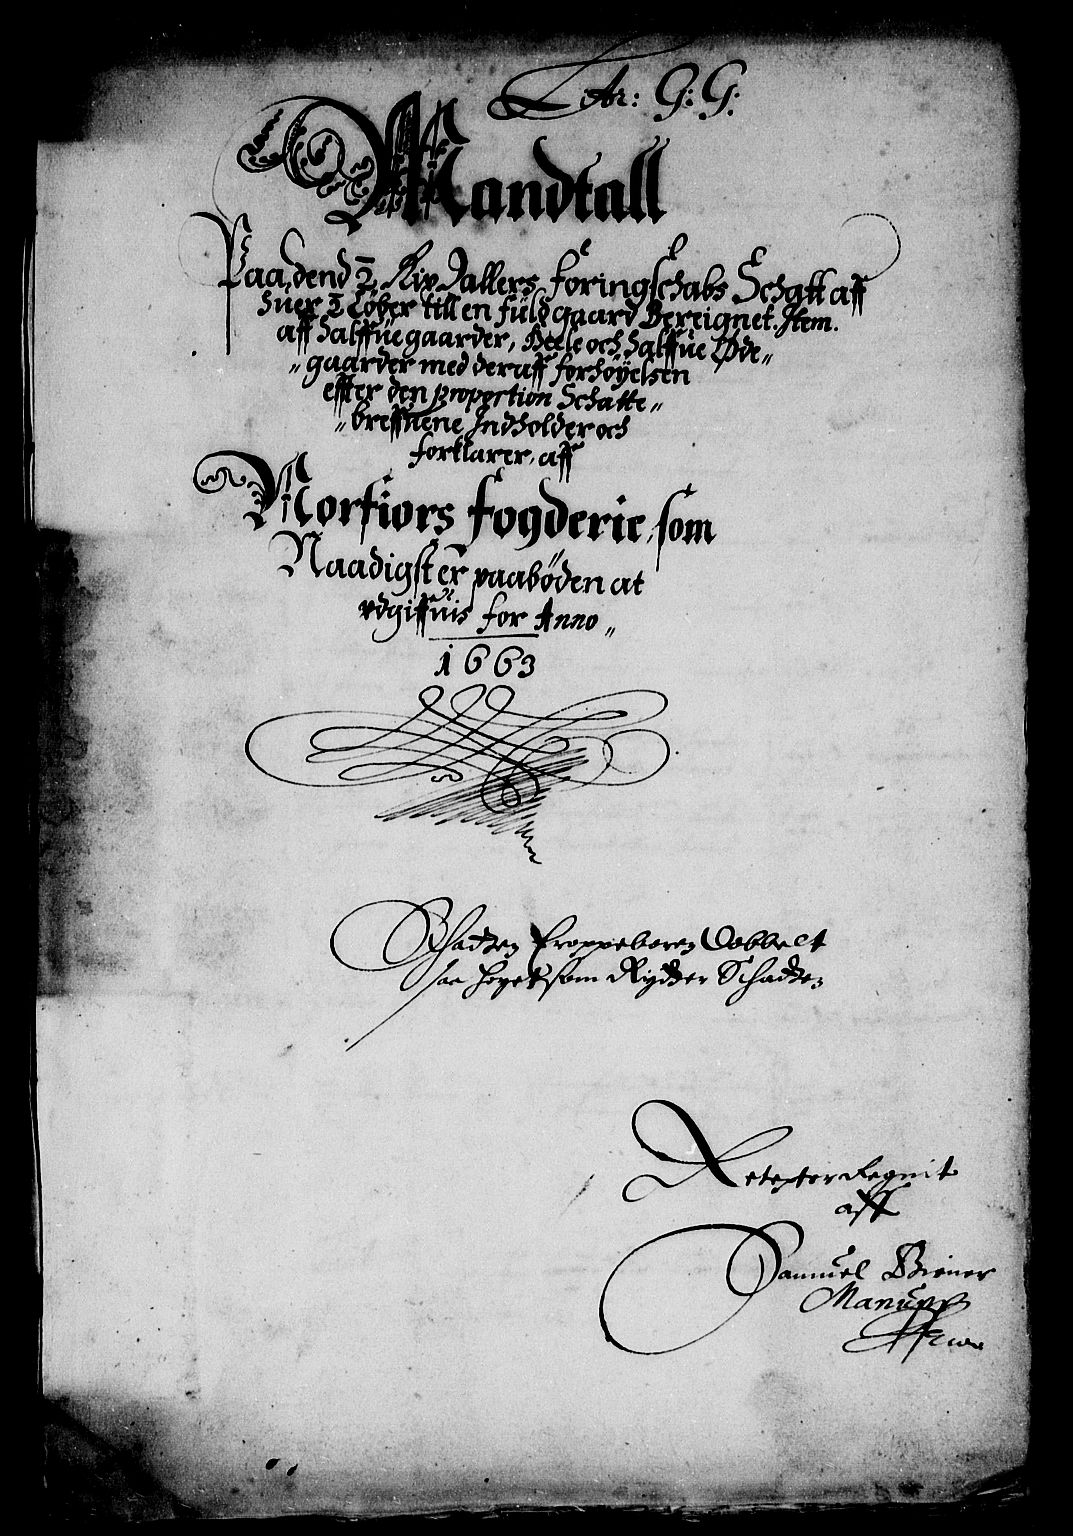 Litr: G: G:
Mandtall
Paa dend 2 Rix Dallers foringschabs Schatt aff
huer 2 Løber till en fuld gaard Bereignet. Item.
aff halffue gaarder, Heele och halffue Øde„
„gaarder med deraff forhøyelsen
effter den proportion Schatte„
„breffuene Indholder och
forklarer, aff
Norfiors fogderie, som
Naadigst er paabøden at
vdgiffuis for Anno„
1663
Schatten Dobbelt
saa høyet som Rytter Schatten
Regnit
aff
Samuel Biener
Manu